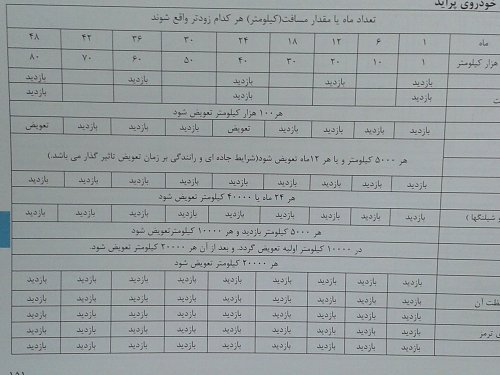 خودروی پراید
تعداد ماه یا مقدار مسافت(کیلومتر) هر کدام زودتر واقع شوند
ماه ۱ ۶ ۱۲ ۱۸ ۲۴ ۳۰ ۳۶ ۴۲ ۴۸
هزار کیلومتر ۱ ۱۰ ۲۰ ۳۰ ۴۰ ۵۰ ۶۰ ۷۰ ۸۰
بازدید بازدید بازدید بازدید بازدید
بازدید بازدید بازدید
هر ۱۰۰ هزار کیلومتر تعویض شود
بازدید بازدید بازدید بازدید تعویض بازدید بازدید بازدید تعویض
هر ۵۰۰۰ کیلومتر و یا هر ۱۲ماه تعویض شود(شرایط جاده ای و رانندگی بر زمان تعویض تاثیر گذار می باشد.)
بازدید بازدید بازدید بازدید بازدید بازدید بازدید بازدید بازدید
هر ۲۴ ماه یا ۴۰۰۰۰ کیلومتر تعویض شود
و شیلنگها ) بازدید بازدید بازدید بازدید بازدید بازدید بازدید بازدید بازدید
هر ۵۰۰۰ کیلومتر بازدید و هر ۱۰۰۰۰ کیلومترتعویض شود
در ۱۰۰۰۰ کیلومتر اولیه تعویض گردد. و بعد از آن هر ۲۰۰۰۰ کیلومتر تعویض شود.
هر ۲۰۰۰۰ کیلومتر تعویض شود
بازدید بازدید بازدید بازدید بازدید بازدید بازدید بازدید بازدید
ظت آن بازدید بازدید بازدید بازدید بازدید بازدید بازدید بازدید بازدید
ی ترمز بازدید بازدید بازدید بازدید بازدید بازدید بازدید بازدید بازدید
بازدید بازدید بازدید بازدید بازدید بازدید بازدید بازدید بازدید